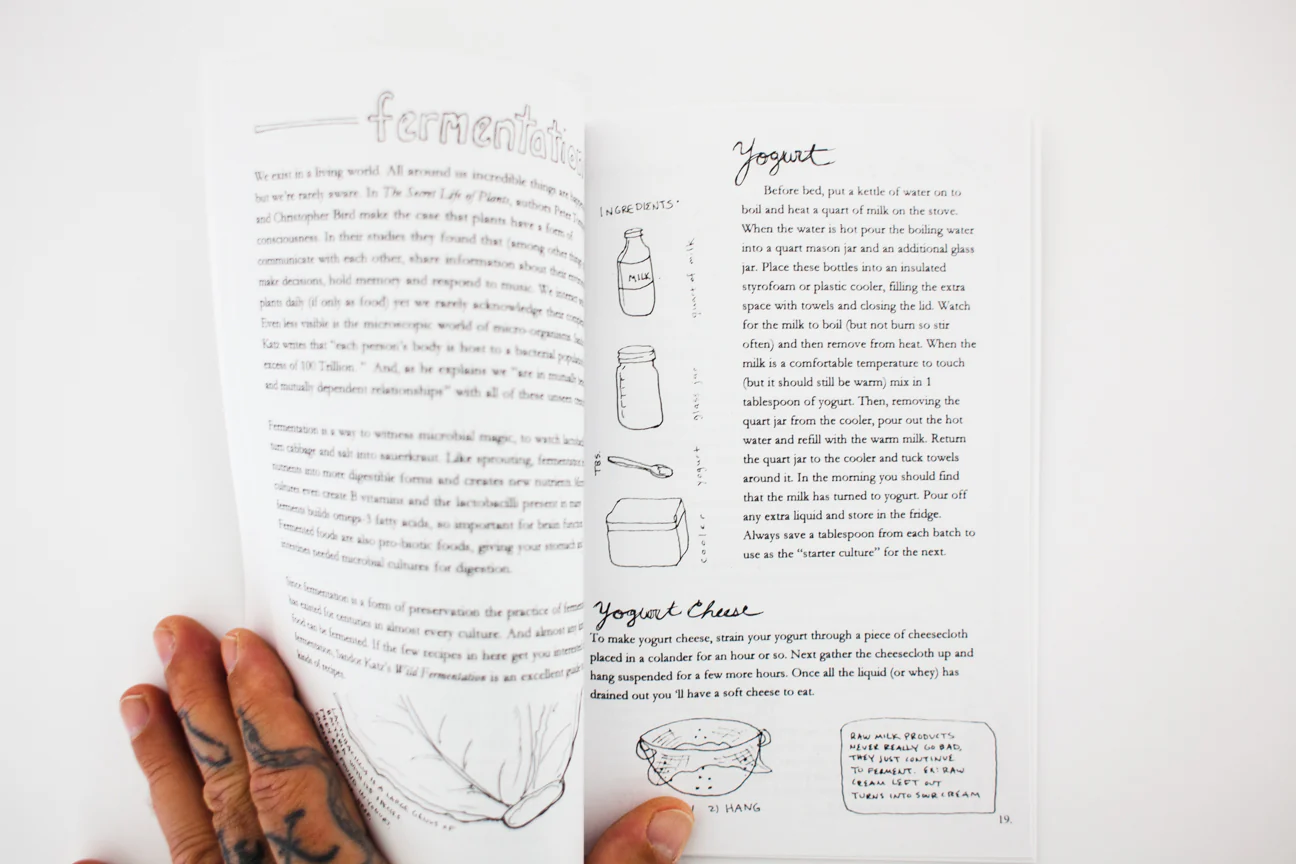 fermentation
We exist in a living world. All around us incredible things are
but we're rarely aware. In The Secret Life of Plants, authors Peter
and Christopher Bird make the case that plants have a form of
consciousness. In their studies they found that (among other things
communicate with each other, share information about their
make decisions, hold memory and respond to music. We interact
plants daily (if only as food) yet we rarely acknowledge their
Even less visible is the microscopic world of micro-organisms.
Katz writes that "each person's body is host to a bacterial
excess of 100 Trillion." And, as he explains we "are in mutually
and mutually dependent relationships" with all of these unseen
Fermentation is a way to witness microbial magic, to watch
turn cabbage and salt into sauerkraut. Like sprouting,
nutrients into more digestible forms and creates new nutrients.
cultures even create B vitamins and the lactobacilli present in
ferments builds omega-3 fatty acids, so important for brain
Fermented foods are also pro-biotic foods, giving your stomach
intestines needed microbial cultures for digestion.
Since fermentation is a form of preservation the practice of
has existed for centuries in almost every culture. And almost any
food can be fermented. If the few recipes in here get you
fermentation, Sandor Katz's Wild Fermentation is an excellent
kinds of recipes.
IS A LARGE GENUS OF
Yogurt
INGREDIENTS:
MILK
quart of milk
glass jar
TBS.
yogurt
cooler
Before bed, put a kettle of water on to
boil and heat a quart of milk on the stove.
When the water is hot pour the boiling water
into a quart mason jar and an additional glass
jar. Place these bottles into an insulated
styrofoam or plastic cooler, filling the extra
space with towels and closing the lid. Watch
for the milk to boil (but not burn so stir
often) and then remove from heat. When the
milk is a comfortable temperature to touch
(but it should still be warm) mix in 1
tablespoon of yogurt. Then, removing the
quart jar from the cooler, pour out the hot
water and refill with the warm milk. Return
the quart jar to the cooler and tuck towels
around it. In the morning you should find
that the milk has turned to yogurt. Pour off
any extra liquid and store in the fridge.
Always save a tablespoon from each batch to
use as the “starter culture” for the next.
Yogurt Cheese
To make yogurt cheese, strain your yogurt through a piece of cheesecloth
placed in a colander for an hour or so. Next gather the cheesecloth up and
hang suspended for a few more hours. Once all the liquid (or whey) has
drained out you 'll have a soft cheese to eat.
2) HANG
RAW MILK PRODUCTS
NEVER REALLY GO BAD,
THEY JUST CONTINUE
TO FERMENT. EX: RAW
CREAM LEFT OUT
TURNS INTO SOUR CREAM
19.